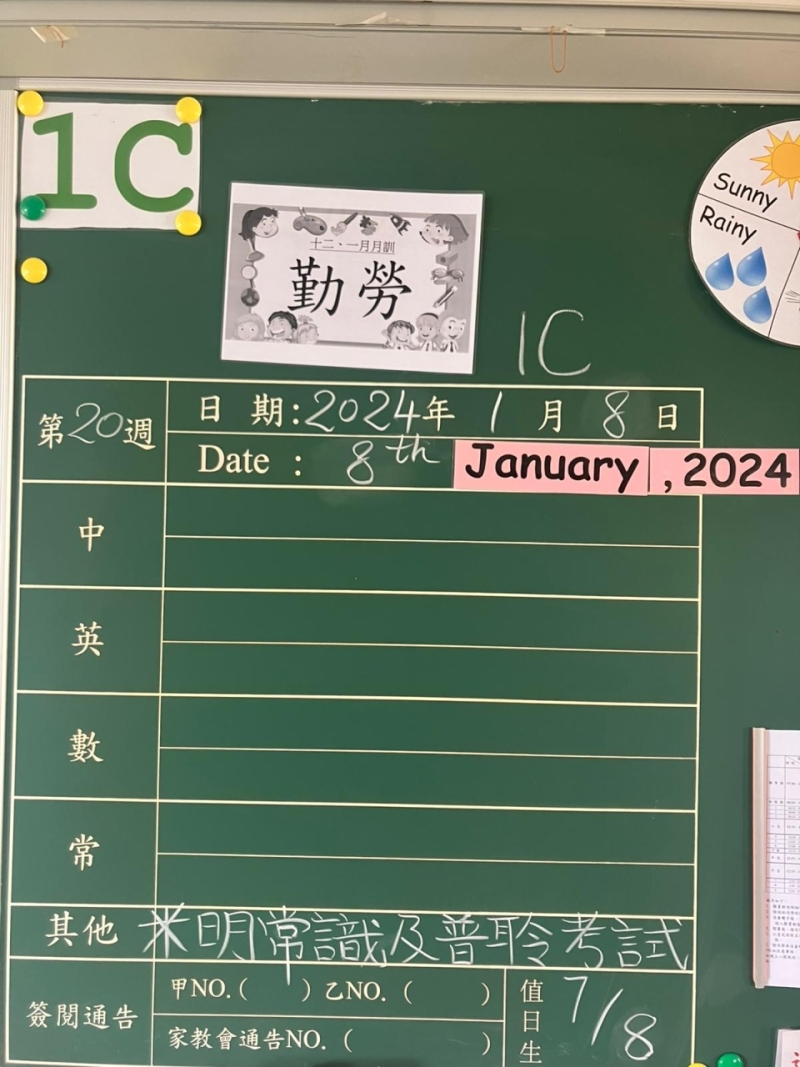 1C
十二、一月月訓
勤勞
Sunny
Rainy
1C
第20週
日期:2024年1月8日
Date : 8th January, 2024
中
英
數
常
其他 *明常識及普聆考試
簽閱通告
甲NO.( ) 乙NO. ( )
家教會通告NO. ( )
值日生 7/8